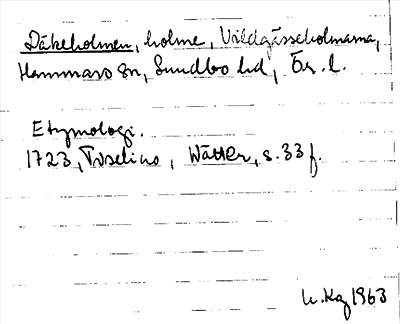 Dåkeholmen, holme, Vildgåsseholmarna,
Hammars sn, Sundbo hd, Ör. l.
Etymologi.
1723, Tiselius, Wätter, s. 33 f.
1963